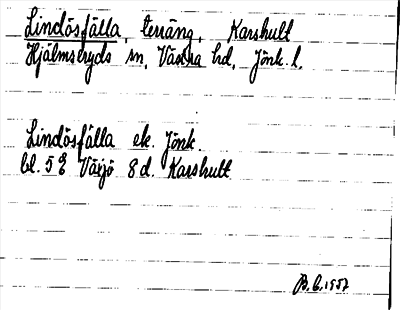 Lindösfälla, terräng, Karshult
Hjälmseryds sn, Västra hd, Jönk. l.
Lindösfälla ek. Jönk.
bl. 5 E Växjö 8 d. Karshult
B.E. 1957